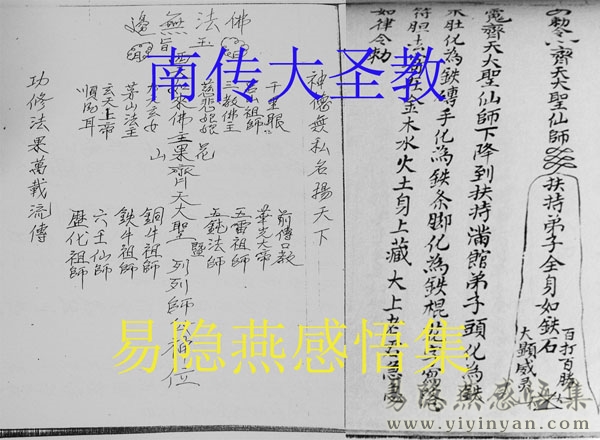 齊天大聖仙師
扶持弟子全身如鉄石
百打百勝
大顯威灵
齊天大聖仙師下降到扶持滿館弟子頭化為鉄
水肚化為鉄磚手化為鉄条脚化為鉄棍
符胆
金木水火土身上藏 大上老君急急
如律令勅
佛法無邊
玉旨
神傳無私名揚天下
千里眼
祖師
三教佛主
慈悲娘娘
花
山
佛主果齊天大聖 列列師 位
九天玄女
茅山法主
玄天上帝
順風耳
前傳口教
華光大帝
五雷祖師
五 法師
暨
銅牛祖師
鉄牛祖師
六壬仙師
歷代祖師
功修法果萬載流傳
南传大圣教
易隐燕感悟集
易隐燕感悟集
www.yiyinyan.com